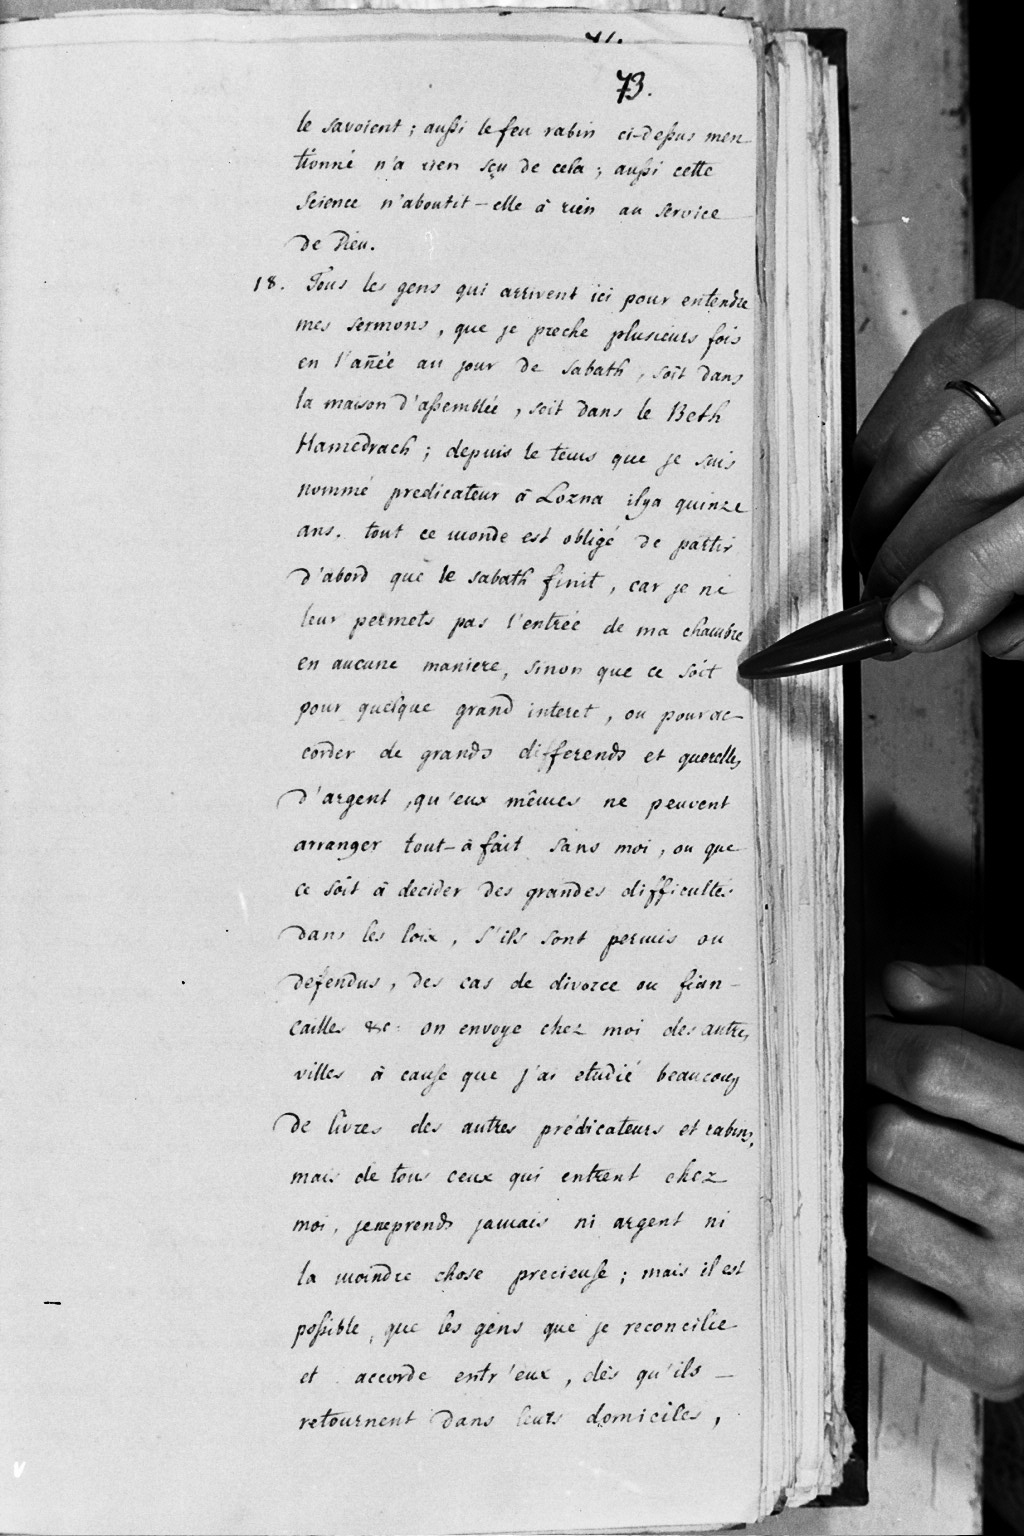 73.
le savoient ; aussi le feu rabin ci-dessus men-
tionné n'a rien sçu de cela ; aussi cette
science n'aboutit-elle à rien au service
de Dieu.
18. Tous les gens qui arrivent ici pour entendre
mes sermons, que je preche plusieurs fois
en l'añée au jour de sabath, soit dans
la maison d'assemblée, soit dans le Beth
Hamedrach ; depuis le tems que je suis
nommé predicateur à Lozna ilya quinze
ans. tout ce monde est obligé de partir
d'abord que le sabath finit, car je ne
leur permets pas l'entrée de ma chambre
en aucune maniere, sinon que ce soit
pour quelque grand interet, ou pour ac-
corder de grands differends et querelles
d'argent, qu'eux mêmes ne peuvent
arranger tout-à fait sans moi, ou que
ce soit à decider des grandes difficultés
dans les loix, s'ils sont permis ou
defendus, des cas de divorce ou fian-
cailles &c: on envoye chez moi des autres
villes à cause que j'ai etudié beaucoup
de livres des autres prédicateurs et rabins,
mais de tous ceux qui entrent chez
moi, je ne prends jamais ni argent ni
la moindre chose precieuse ; mais il est
possible, que les gens que je reconcilie
et accorde entr'eux, dès qu'ils —
retournent dans leurs domiciles,